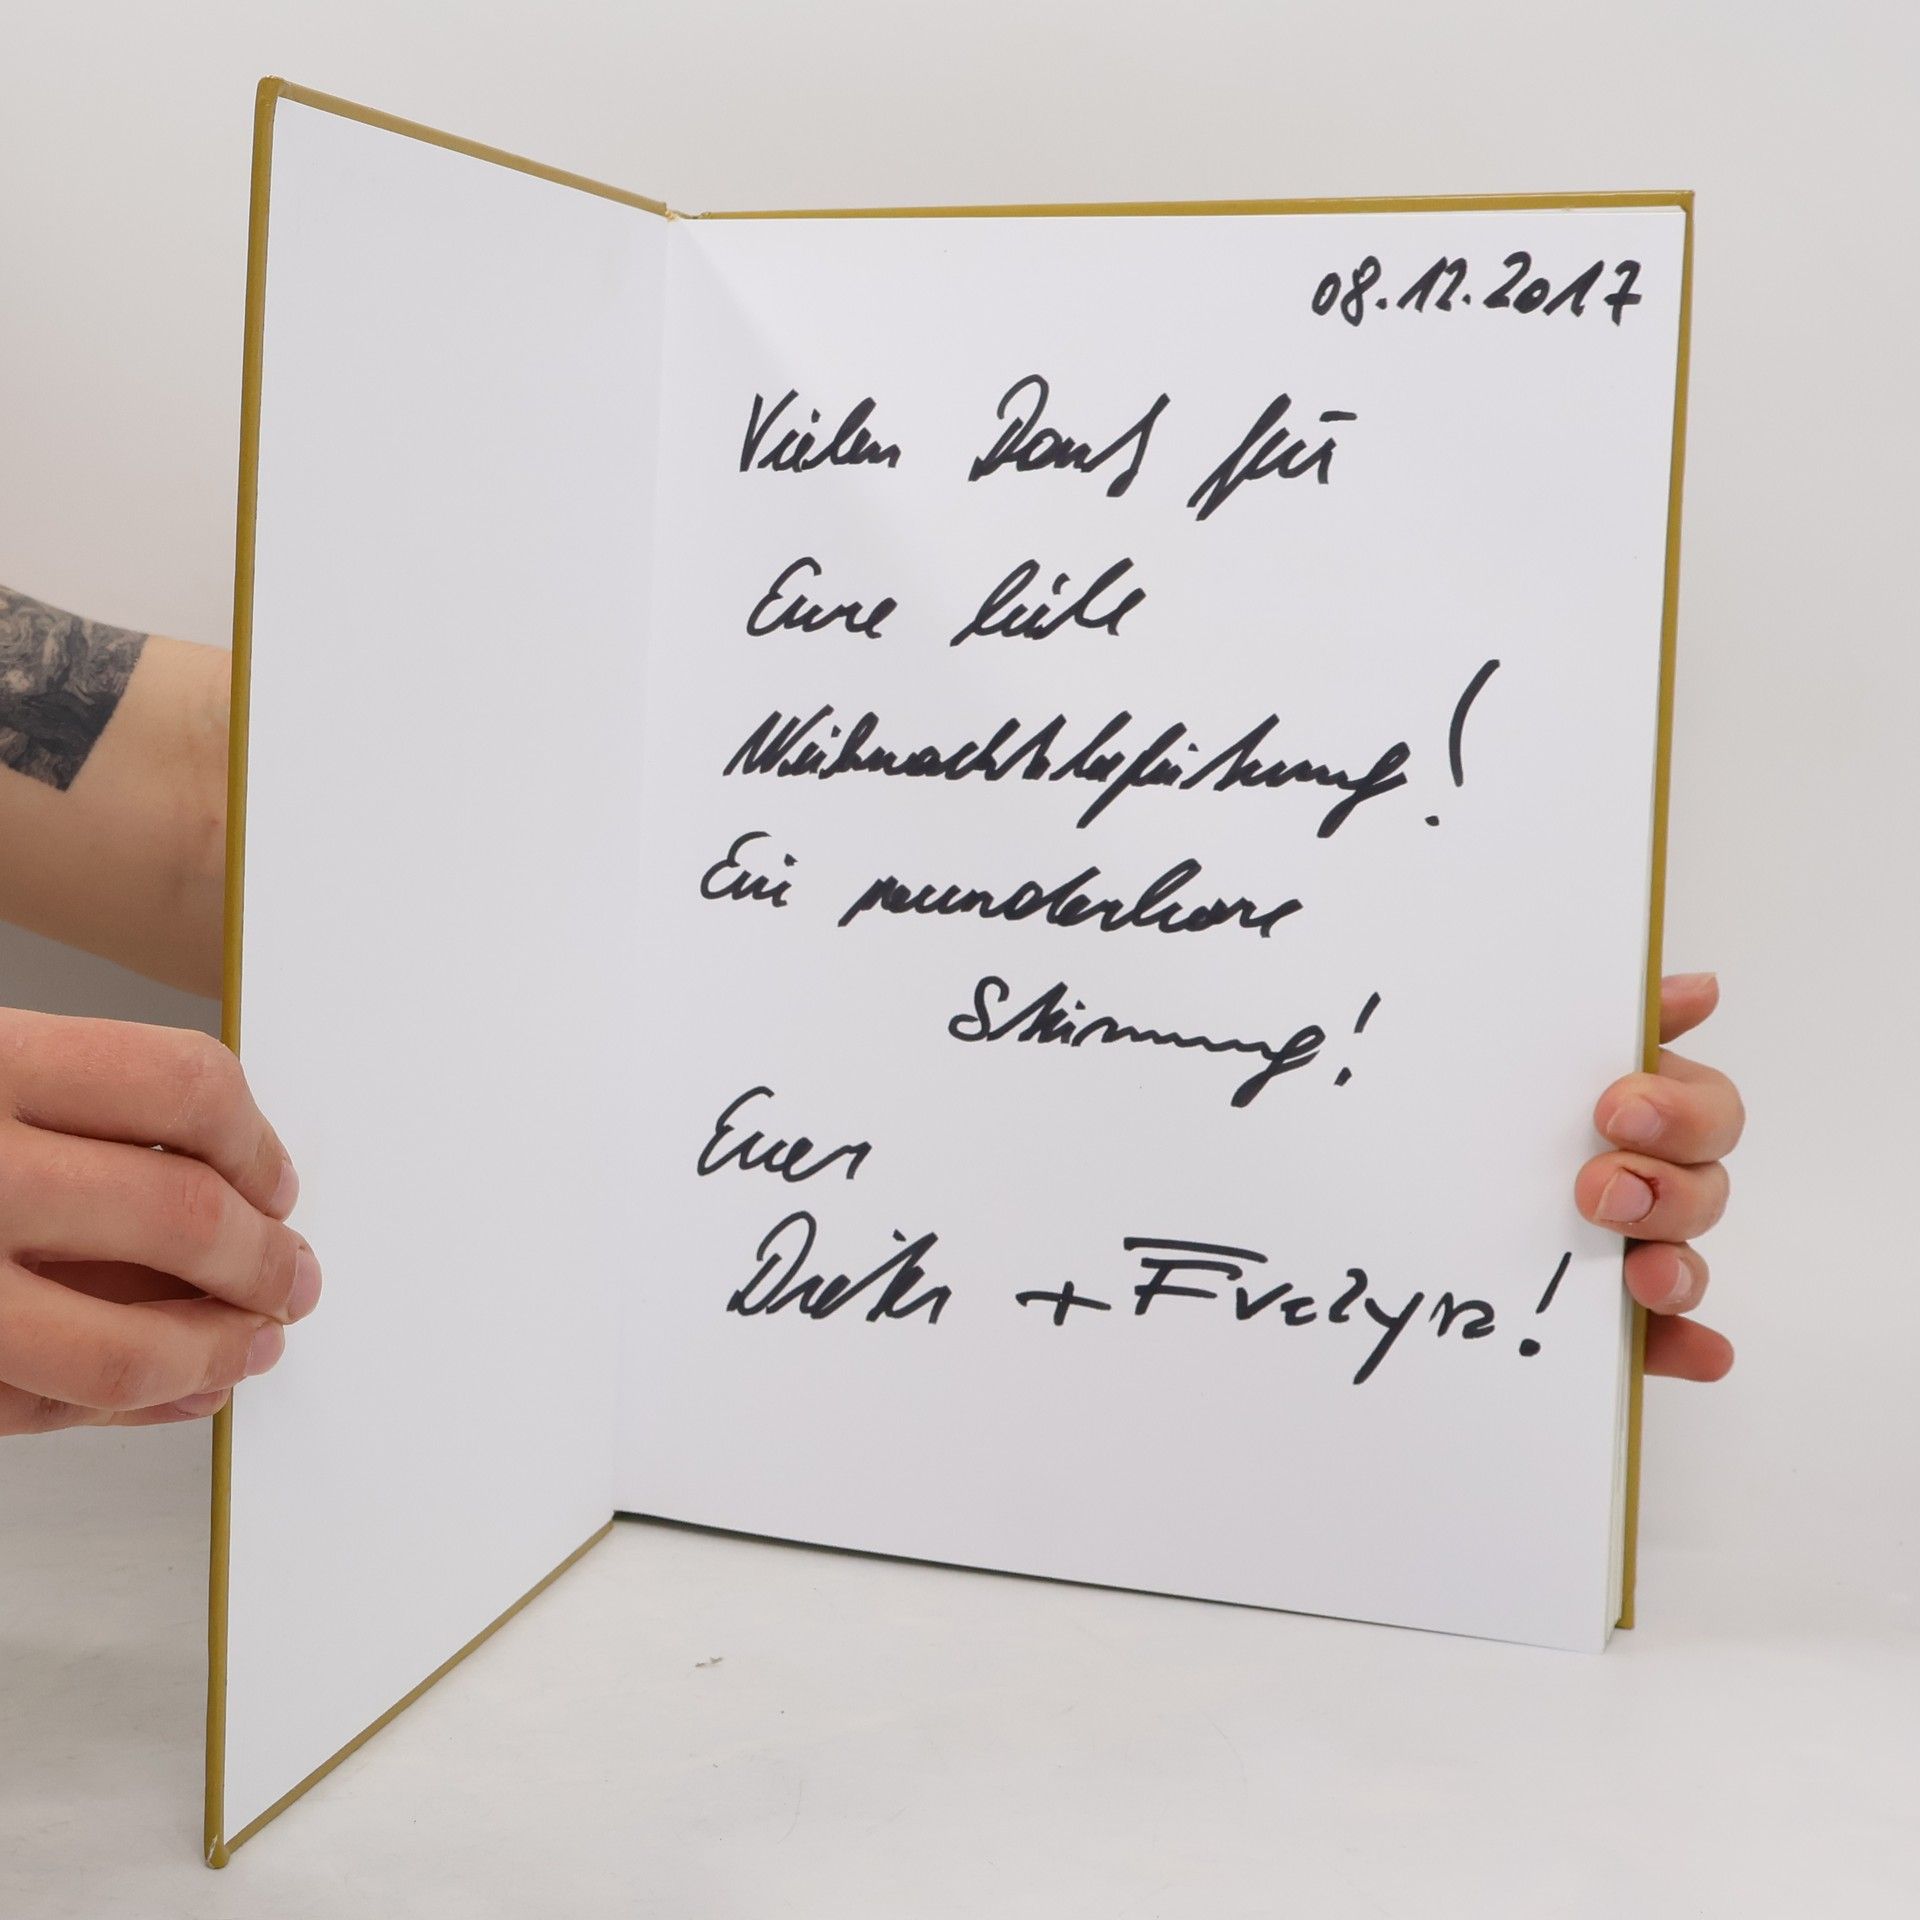 08.12.2017
Vielen Dank für
Eure liebe
Ein wunderbare
Stimmung!
Euer
Dieter + Evelyn!